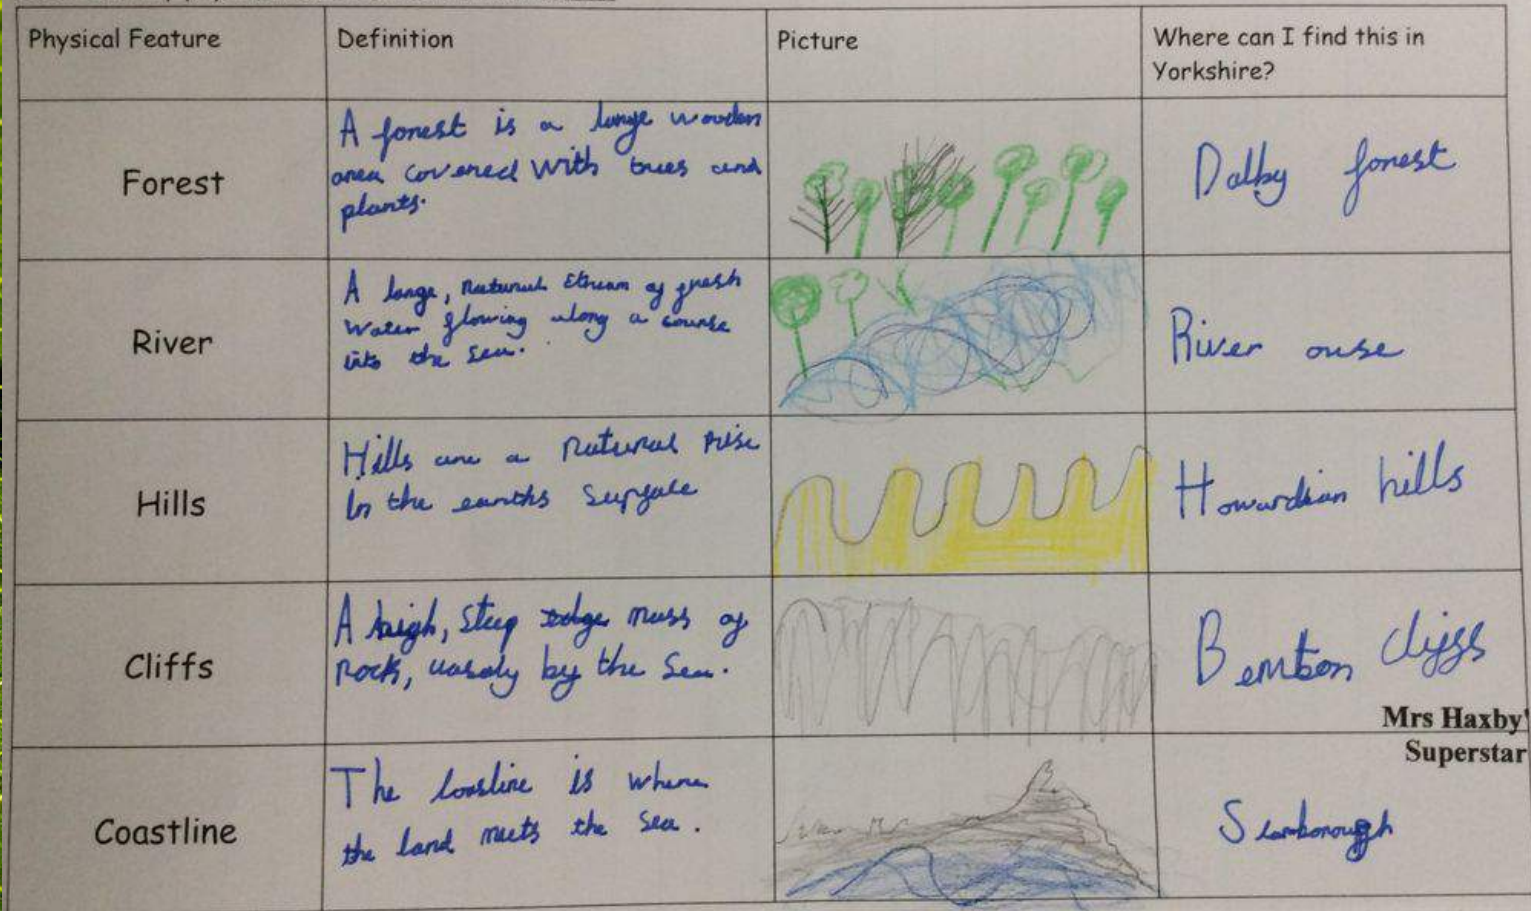 Physical Feature
Definition
Picture
Where can I find this in
Yorkshire?
Forest
A forest is a large wooden
area covered with trees and
plants.
Dalby forest
River
A large, natural stream of fresh
water flowing along a course
into the sea.
River ouse
Hills
Hills are a natural rise
In the earths surface
Howardian hills
Cliffs
A high, steep edge mass of
rock, usaly by the sea.
Bemton cliffs
Mrs Haxby'
Superstar
Coastline
The coasline is where
the land meets the sea.
Scarborough